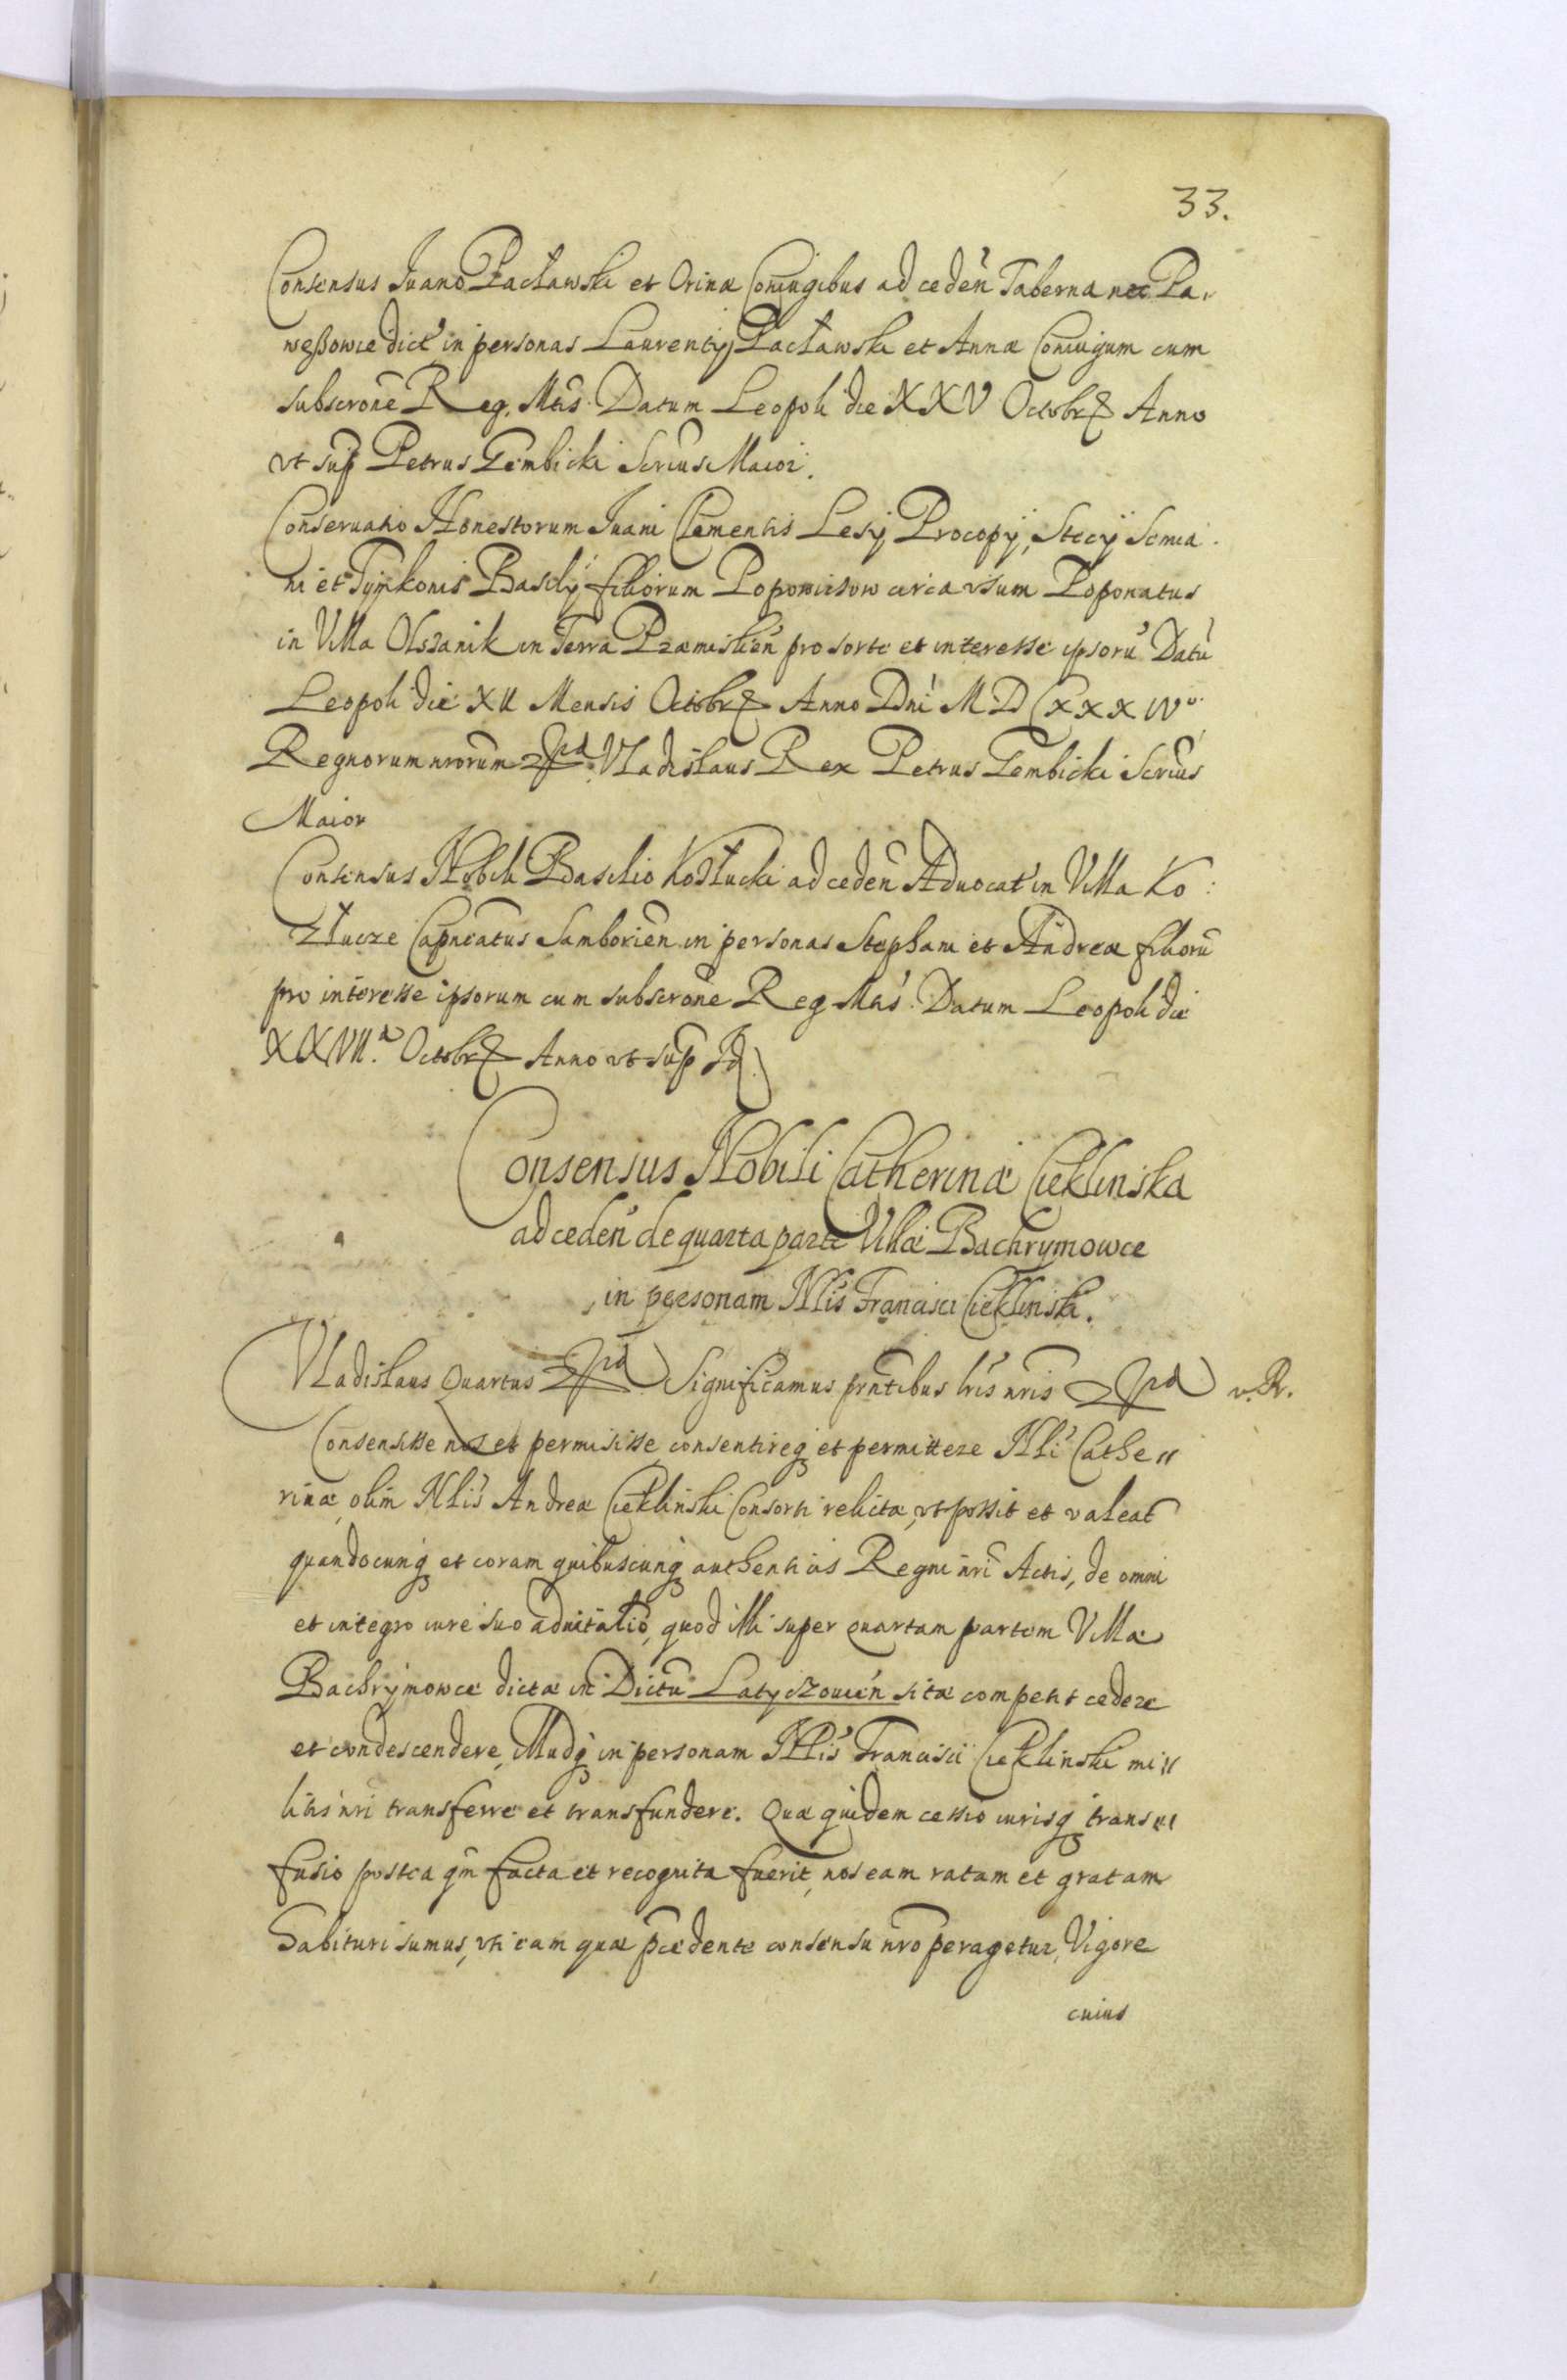 33.
Consensus Iuano Pacławski et Orinæ Coniugibus ad ceden̄ Taberna nec Pa,
weßowce dict' in personas Laurentij Pacławski et Annæ Coniugum cum
subscrone Reg. Mtis. Datum Leopoli die XXV Octobrꝫ Anno
vt sup̄ Petrus Gembicki Scrius Maior.
Conseruatio Honestorum Iuani Clementis Lesij Procopij, Stecij Semia.
ni et Tymkonis Basilij filiorum Popowiczow circa vsum Poponatus
in Villa Olszanik in Terra Præmislien̄ pro sorte et interesse ipsorū Datū
Leopoli die XII Mensis Octobrꝫ Anno Dni M D CXXXIVo.
Regnorum nrorum Vladislaus Rex Petrus Gembicki Scrius
Maior
Consensus Nobili Basilio Kozłucki ad ceden̄ Aduocat' in Villa Ko:
złucze Capneatus Samborien̄ in personas Stephani et Andreæ filiorū
pro interesse ipsorum cum subscrone Reg Mtis. Datum Leopoli die
XXVII.a Octobrꝫ Anno vt sup̄ Id
Consensus Nobili Catherinæ Cieklinska
ad ceden̄ de quarta parte Villæ Bachrymowce
in personam Nlis Francisci Cieklinski.
Vladislaus Quartus Significamus prntibus lris nris v. R.
Consensisse nos et permisisse, consentireqꝫ et permittere Nli Cathe"
rinæ, olim Nlis Andreæ Cieklinski Consorti relictæ, vt possit et valeat
quandocunqꝫ et coram quibuscunqꝫ authenticis Regni nri Actis, de omni
et integro iure suo aduitalio, quod illi super quartam partem Villæ
Bachrymowce dictæ in Dictu Latyczouien̄ sitæ competit cedere
et condescendere, Illudqꝫ in personam Nlis Francisci Cieklinski mi"
litis nri transferre et transfundere. Quæ quidem cessio iurisqꝫ trans"
fusio postea qm facta et recognita fuerit, nos eam ratam et gratam
habituri sumus, vti eam quæ pcedente consensu nro peragetur, Vigore
cuius